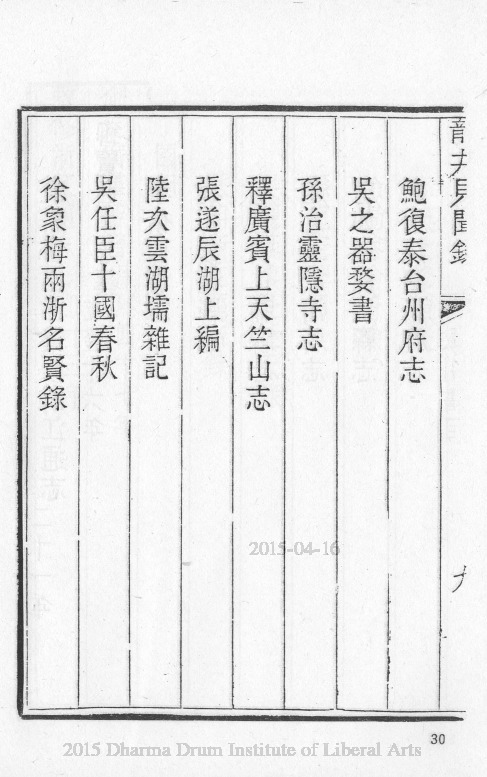 龍井見聞錄
鮑復泰台州府志
吳之器婺書
孫治靈隱寺志
釋廣賓上天竺山志
張遂辰湖上編
陸次雲湖壖雜記
吳任臣十國春秋
徐象梅兩浙名賢錄
2015-04-16
30
2015 Dharma Drum Institute of Liberal Arts